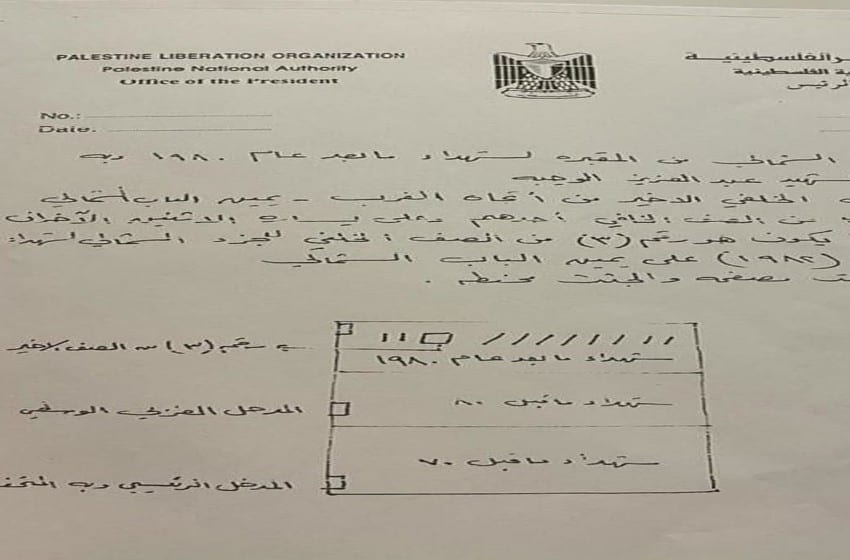 PALESTINE LIBERATION ORGANIZATION
Palestine National Authority
Office of the President
الفلسطينية
الفلسطينية
الرئيس
No.:
Date.
الشمالي من المقبره لشهداء ما بعد عام ١٩٨٠ وبه
عبد العزيز الوجيه
الخلفي الاخير من اتجاه الغرب - يمين الباب الشمالي
من الصف الخلفي أحدهم وعلى يساره الاثنين الآخران
يكون هو رقم (٣) من الصف الخلفي للجزء الشمالي لشهداء
(١٩٨٢) على يمين الباب الشمالي
مصفحه والجثث محنطه .
رقم (٣) من الصف الاخير
شهداء ما بعد عام ١٩٨٠
المدخل الغربي الوسطي
شهداء ما قبل ٨٠
المدخل الرئيسي وبه
شهداء ما قبل ٧٠